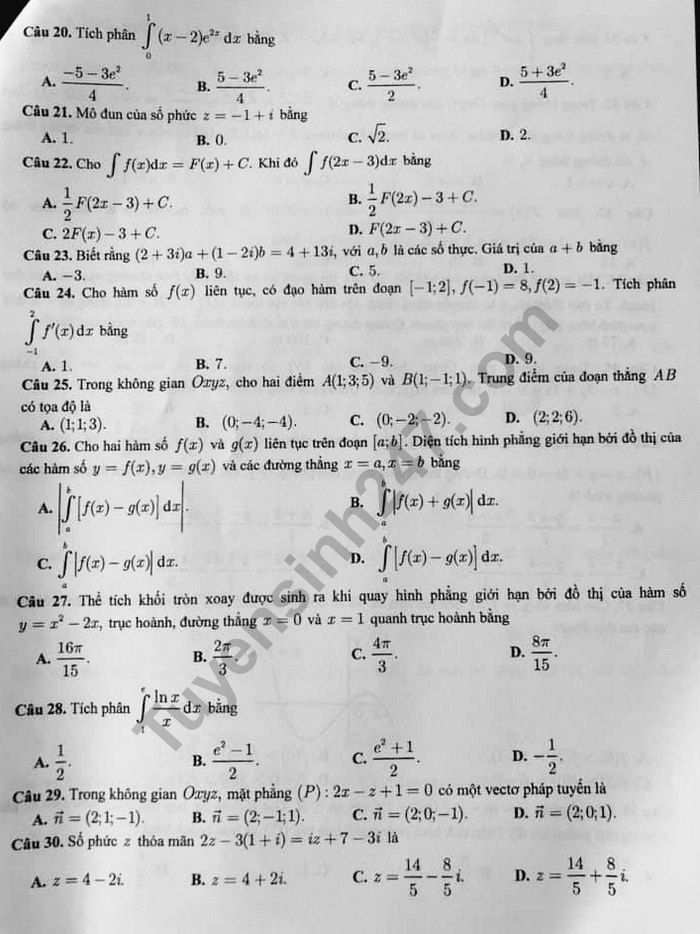 Câu 20. Tích phân $\int_0^1 (x-2)e^{2x}\,dx$ bằng
A. $\frac{-5-3e^2}{4}$. B. $\frac{5-3e^2}{4}$. C. $\frac{5-3e^2}{2}$. D. $\frac{5+3e^2}{4}$.
Câu 21. Mô đun của số phức $z=-1+i$ bằng
A. 1. B. 0. C. $\sqrt{2}$. D. 2.
Câu 22. Cho $\int f(x)dx = F(x)+C$. Khi đó $\int f(2x-3)dx$ bằng
A. $\frac{1}{2}F(2x-3)+C$. B. $\frac{1}{2}F(2x)-3+C$.
C. $2F(x)-3+C$. D. $F(2x-3)+C$.
Câu 23. Biết rằng $(2+3i)a+(1-2i)b=4+13i$, với $a,b$ là các số thực. Giá trị của $a+b$ bằng
A. −3. B. 9. C. 5. D. 1.
Câu 24. Cho hàm số $f(x)$ liên tục, có đạo hàm trên đoạn $[-1;2]$, $f(-1)=8, f(2)=-1$. Tích phân
$\int_{-1}^{2} f'(x)dx$ bằng
A. 1. B. 7. C. −9. D. 9.
Câu 25. Trong không gian $Oxyz$, cho hai điểm $A(1;3;5)$ và $B(1;-1;1)$. Trung điểm của đoạn thẳng $AB$
có tọa độ là
A. (1;1;3). B. (0;−4;−4). C. (0;−2;−2). D. (2;2;6).
Câu 26. Cho hai hàm số $f(x)$ và $g(x)$ liên tục trên đoạn $[a;b]$. Diện tích hình phẳng giới hạn bởi đồ thị của
các hàm số $y=f(x), y=g(x)$ và các đường thẳng $x=a, x=b$ bằng
A. $\left|\int_a^b [f(x)-g(x)]\,dx\right|$. B. $\int_a^b |f(x)+g(x)|\,dx$.
C. $\int_a^b |f(x)-g(x)|\,dx$. D. $\int_a^b [f(x)-g(x)]\,dx$.
Câu 27. Thể tích khối tròn xoay được sinh ra khi quay hình phẳng giới hạn bởi đồ thị của hàm số
$y=x^2-2x$, trục hoành, đường thẳng $x=0$ và $x=1$ quanh trục hoành bằng
A. $\frac{16\pi}{15}$. B. $\frac{2\pi}{3}$. C. $\frac{4\pi}{3}$. D. $\frac{8\pi}{15}$.
Câu 28. Tích phân $\int_1^e \frac{\ln x}{x}dx$ bằng
A. $\frac{1}{2}$. B. $\frac{e^2-1}{2}$. C. $\frac{e^2+1}{2}$. D. $-\frac{1}{2}$.
Câu 29. Trong không gian $Oxyz$, mặt phẳng $(P): 2x-z+1=0$ có một vectơ pháp tuyến là
A. $\vec{n}=(2;1;-1)$. B. $\vec{n}=(2;-1;1)$. C. $\vec{n}=(2;0;-1)$. D. $\vec{n}=(2;0;1)$.
Câu 30. Số phức $z$ thỏa mãn $2z-3(1+i)=iz+7-3i$ là
A. $z=4-2i$. B. $z=4+2i$. C. $z=\frac{14}{5}-\frac{8}{5}i$. D. $z=\frac{14}{5}+\frac{8}{5}i$.
Tuyensinh247.com